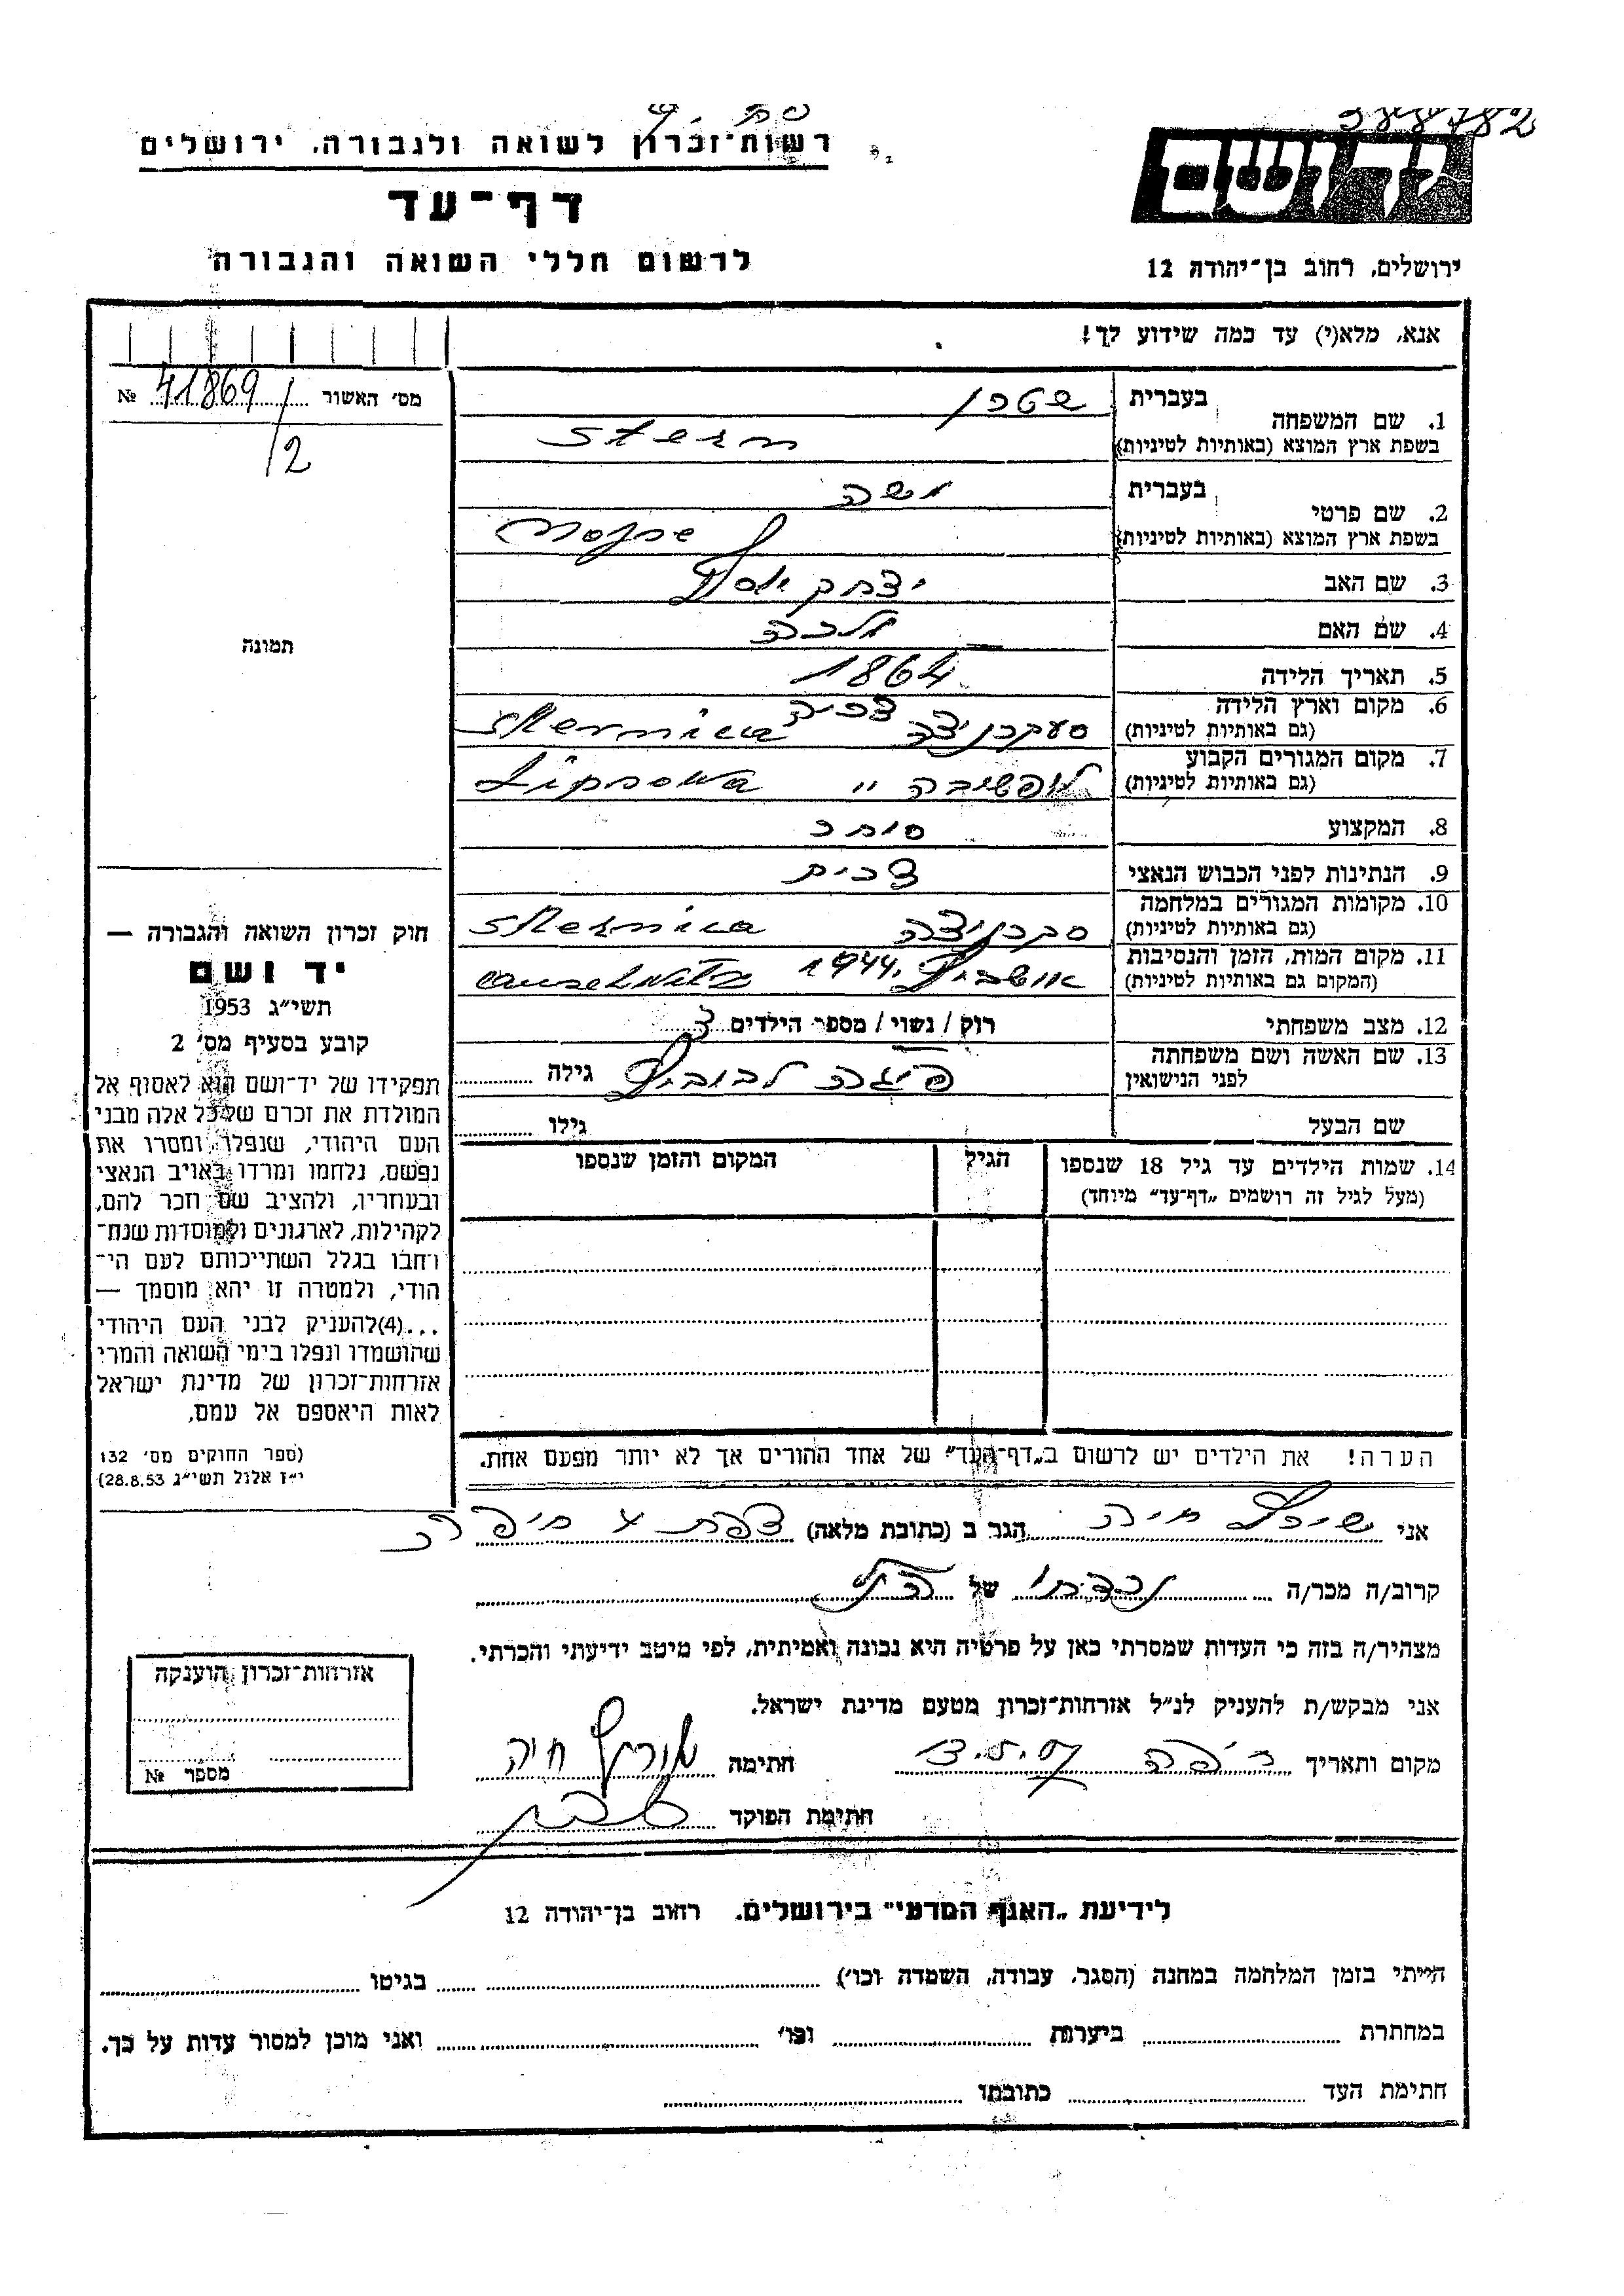 388782
רשות־זכרון לשואה ולגבורה, ירושלים
דף־עד
לרשום חללי השואה והגבורה
יד ושם
ירושלים, רחוב בן־יהודה 12
אנא, מלא(י) עד כמה שידוע לך!
מס׳ האשור 41869 №
/2
תמונה
1. שם המשפחה בעברית שטרן
בשפת ארץ המוצא (באותיות לטיניות) Stern
2. שם פרטי בעברית משה
בשפת ארץ המוצא (באותיות לטיניות) Mojsse
3. שם האב יצחק יוסף
4. שם האם מלכה
5. תאריך הלידה 1864
6. מקום וארץ הלידה צכיה
(גם באותיות לטיניות) סעקרניצה
7. מקום המגורים הקבוע
(גם באותיות לטיניות) ״ Lipsowa
8. המקצוע סוחר
9. הנתינות לפני הכבוש הנאצי צכית
10. מקומות המגורים במלחמה
(גם באותיות לטיניות) סקרניצה
11. מקום המות, הזמן והנסיבות
(המקום גם באותיות לטיניות) אושביץ 1944
12. מצב משפחתי רוק / נשוי / מספר הילדים 3
13. שם האשה ושם משפחתה
לפני הנישואין לבוביץ גילה
שם הבעל גילו
14. שמות הילדים עד גיל 18 שנספו הגיל המקום והזמן שנספו
(מעל לגיל זה רושמים „דף־עד״ מיוחד)
הערה! את הילדים יש לרשום ב„דף־העד״ של אחד ההורים אך לא יותר מפעם אחת.
חוק זכרון השואה והגבורה —
יד ושם
תשי״ג 1953
קובע בסעיף מס׳ 2
תפקידו של יד־ושם הוא לאסוף אל
המולדת את זכרם של כל אלה מבני
העם היהודי, שנפלו ומסרו את
נפשם, נלחמו ומרדו באויב הנאצי
ובעוזריו, ולהציב שם וזכר להם,
לקהילות, לארגונים ולמוסדות שנח־
רחבו בגלל השתייכותם לעם הי־
הודי, ולמטרה זו יהא מוסמך —
...(4)להעניק לבני העם היהודי
שהושמדו ונפלו בימי השואה והמרי
אזרחות־זכרון של מדינת ישראל
לאות היאספם אל עמם,
(ספר החוקים מס׳ 132
י״ז אלול תשי״ג 28.8.53)
אני חיה הגר ב (כתובת מלאה) צפת 4 חיפה
קרוב/ה מכר/ה נכדתו של הנ״ל
מצהיר/ה בזה כי העדות שמסרתי כאן על פרטיה היא נכונה ואמיתית, לפי מיטב ידיעתי והכרתי.
אני מבקש/ת להעניק לנ״ל אזרחות־זכרון מטעם מדינת ישראל.
מקום ותאריך חיפה 13.5.57 חתימה חיה
חתימת הפוקד
אזרחות־זכרון הוענקה
מספר №
לידיעת „האגף המדעי״ בירושלים, רחוב בן־יהודה 12
הייתי בזמן המלחמה במחנה (הסגר, עבודה, השמדה וכו׳) בגיטו
במחתרת ביערות וכו׳ ואני מוכן למסור עדות על כך.
חתימת העד כתובתו